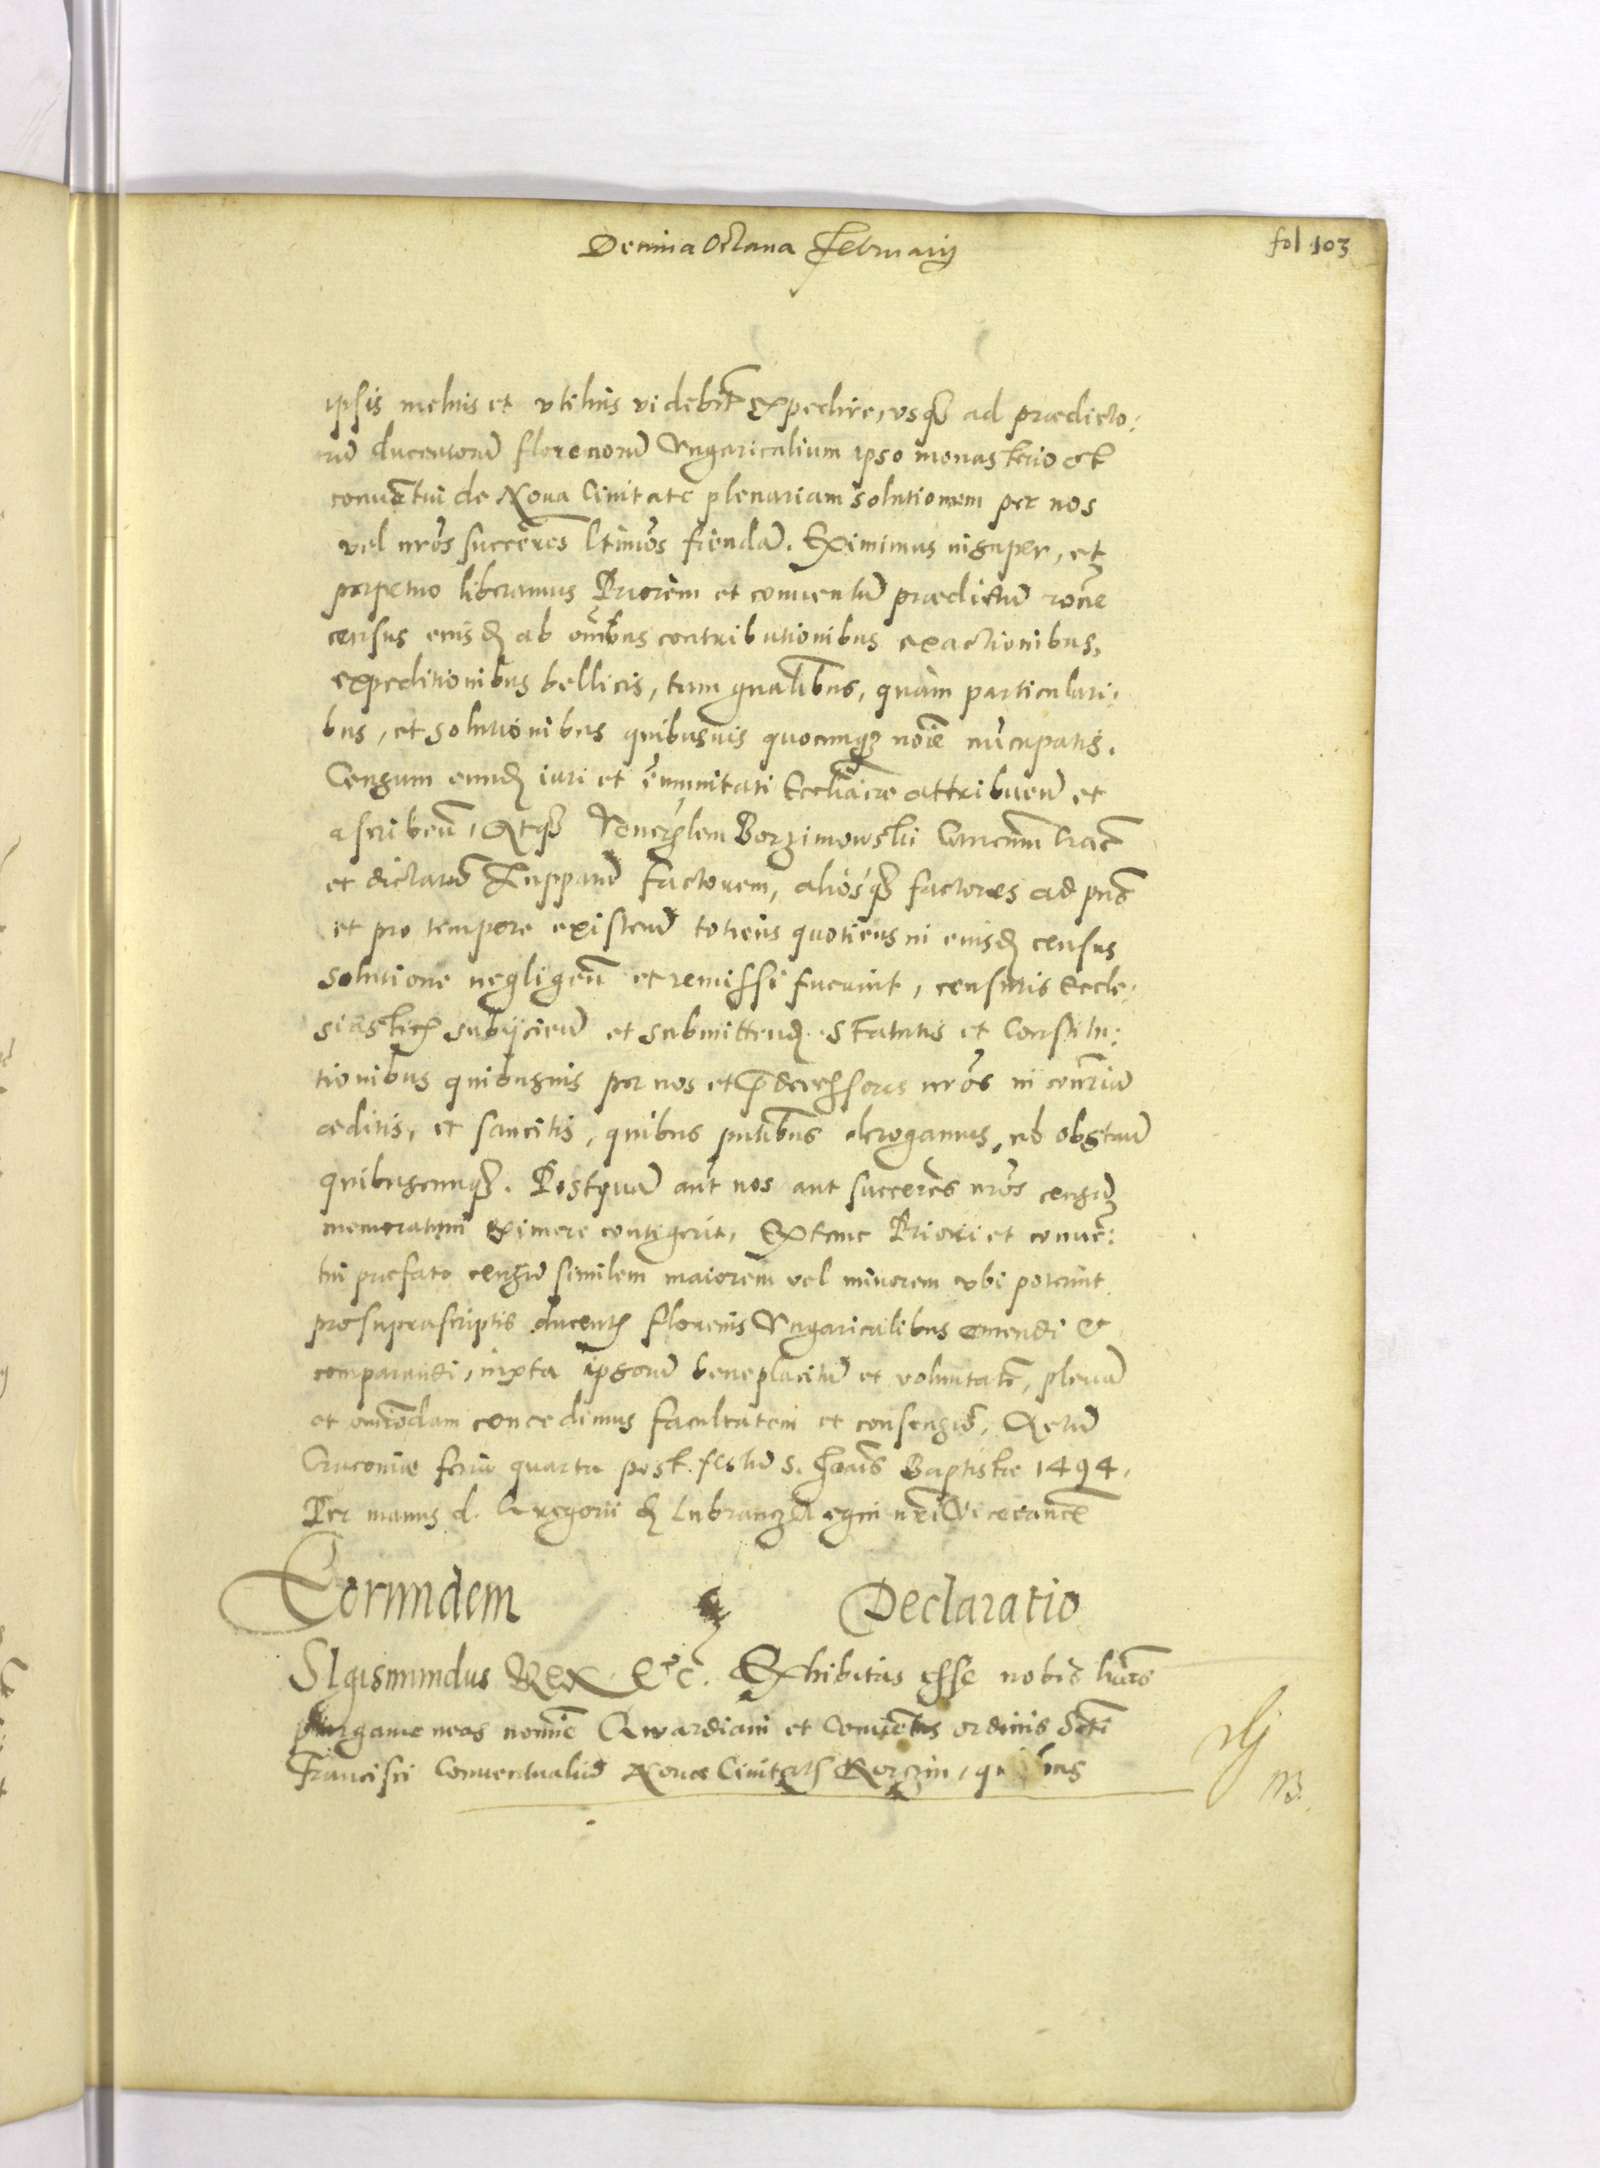 Decima Octaua Februarij
fol 103
ipsis melius et vtilius videbit expedire, vsq ad prædicto:
rū ducentorū florenorū Vngaricalium ipso monasterio et
conuētui de Noua Ciuitate plenariam solutionem per nos
vel nros succeres ltimos fiendā. Eximimus insuper, et
perpetuo liberamus Priorem et conuentū prædictū rone
census eiusd ab omibus contributionibus exactionibus,
expeditionibus bellicis, tum gnalibus, quàm particulari:
bus, et solutionibus quibusuis quocunq noie nūcupatis.
Censum eund iuri et emunitati Eccliasticæ attribuen et
ascriben, Atq Venerlem Borzimowski Canicum Crac
et dictarū Zuppарū factorem, aliosq factores ad pns
et pro tempore existen totiens quotiens in eiusd census
solutione negligen et remissi fuerint, censuris Eccle:
siasticis subijcien et submitten. Statutis et Constitu:
tionibus quibusuis per nos et predecessores nros in contriū
æditis, et sancitis, quibus pntibus derogamus, nō obstan
quibuscunq. Postquā aut nos aut succeres nros censū
memoratum eximere contigerit, Extunc Priori et conuē:
tui prefato censū similem maiorem vel minorem vbi poterint
pro suprascriptis ducentis florenis Vngaricalibus emendi et
comparandi, iuxta ipsorū beneplacitū et voluntatē, plenā
et omiodam concedimus facultatem et consensū. Actū
Cracouiæ feria quarta post festū S. Joais Baptistæ 1494.
Per manus d. Gregorii de Lubrancz Regni nri Vicecance
Eorundem Declaratio
SIgismundus Rex Etc. Exhibitas esse nobis lras
pargameneas nomie Gwardiani et Conuētus ordinis Scti
Francisci Conuentualiū Nouæ Ciuitatis Korczin, quibus